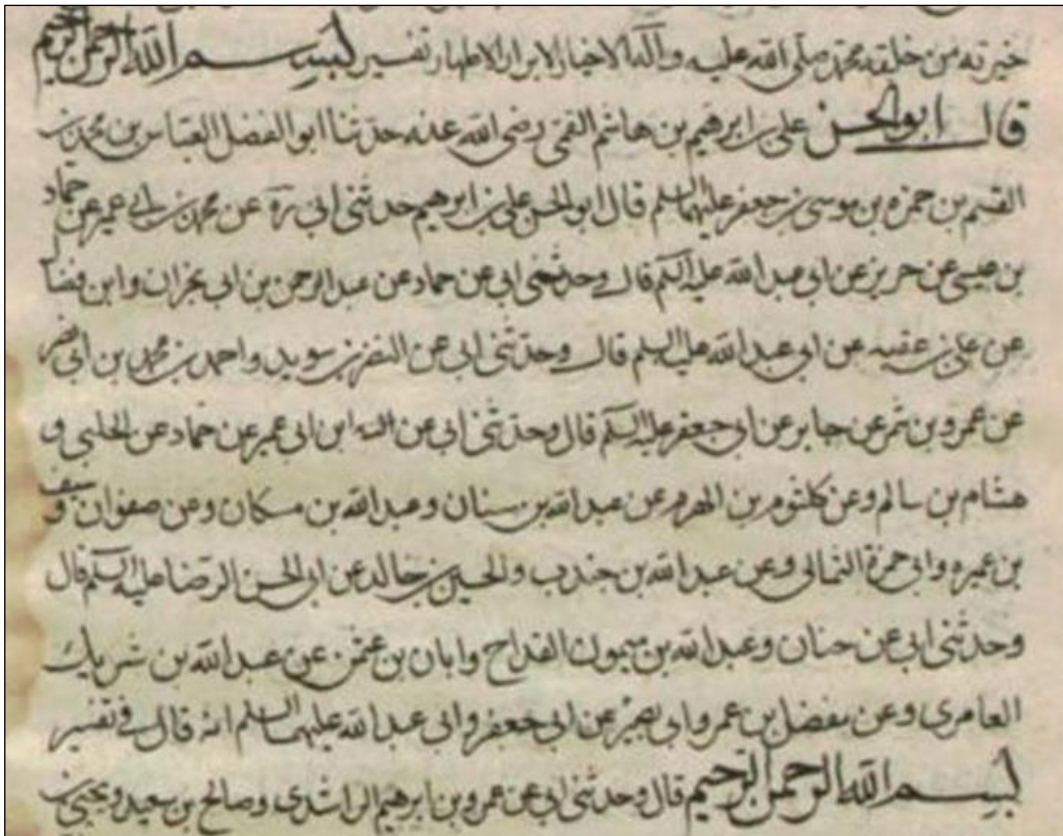 خيرته من خلقه محمد صلى الله عليه وآله الاخيار الابرار الاطهار تفسير بسم الله الرحمن الرحيم
قال ابو الحسن على بن ابرهيم بن هاشم القمى رضى الله عنه حدثنا ابو الفضل العباس بن محمد بن
القسم بن حمزه بن موسى بن جعفر عليهما السلم قال ابو الحسن على بن ابرهيم حدثنى ابى ره عن محمد بن ابى عمير عن حماد
بن عيسى عن حريز عن ابى عبد الله عليه السلم قال وحدثنى ابى عن حماد عن عبد الرحمن بن ابى نجران وابن فضال
عن على بن عقبه عن ابى عبد الله عليه السلم قال وحدثنى ابى عن النضر بن سويد واحمد بن محمد بن ابى نصر
عن عمرو بن شمر عن جابر عن ابى جعفر عليه السلم قال وحدثنى ابى عن ابن ابى عمير عن حماد عن الحلبى و
هشام بن سالم وعن كلثوم بن الهرم عن عبد الله بن سنان وعبد الله بن مسكان وعن صفوان و سيف
بن عميره وابى حمزة الثمالى وعن عبد الله بن جندب والحسين بن خالد عن ابى الحسن الرضا عليه السلم قال
وحدثنى ابى عن حنان وعبد الله بن ميمون القداح وابان بن عثمن عن عبد الله بن شريك
العامرى وعن مفضل بن عمر وابى بصير عن ابى جعفر وابى عبد الله عليهما السلم انه قال فى تفسير
بسم الله الرحمن الرحيم قال وحدثنى ابى عن عمرو بن ابرهيم الراشدى وصالح بن سعيد ويحيى بن